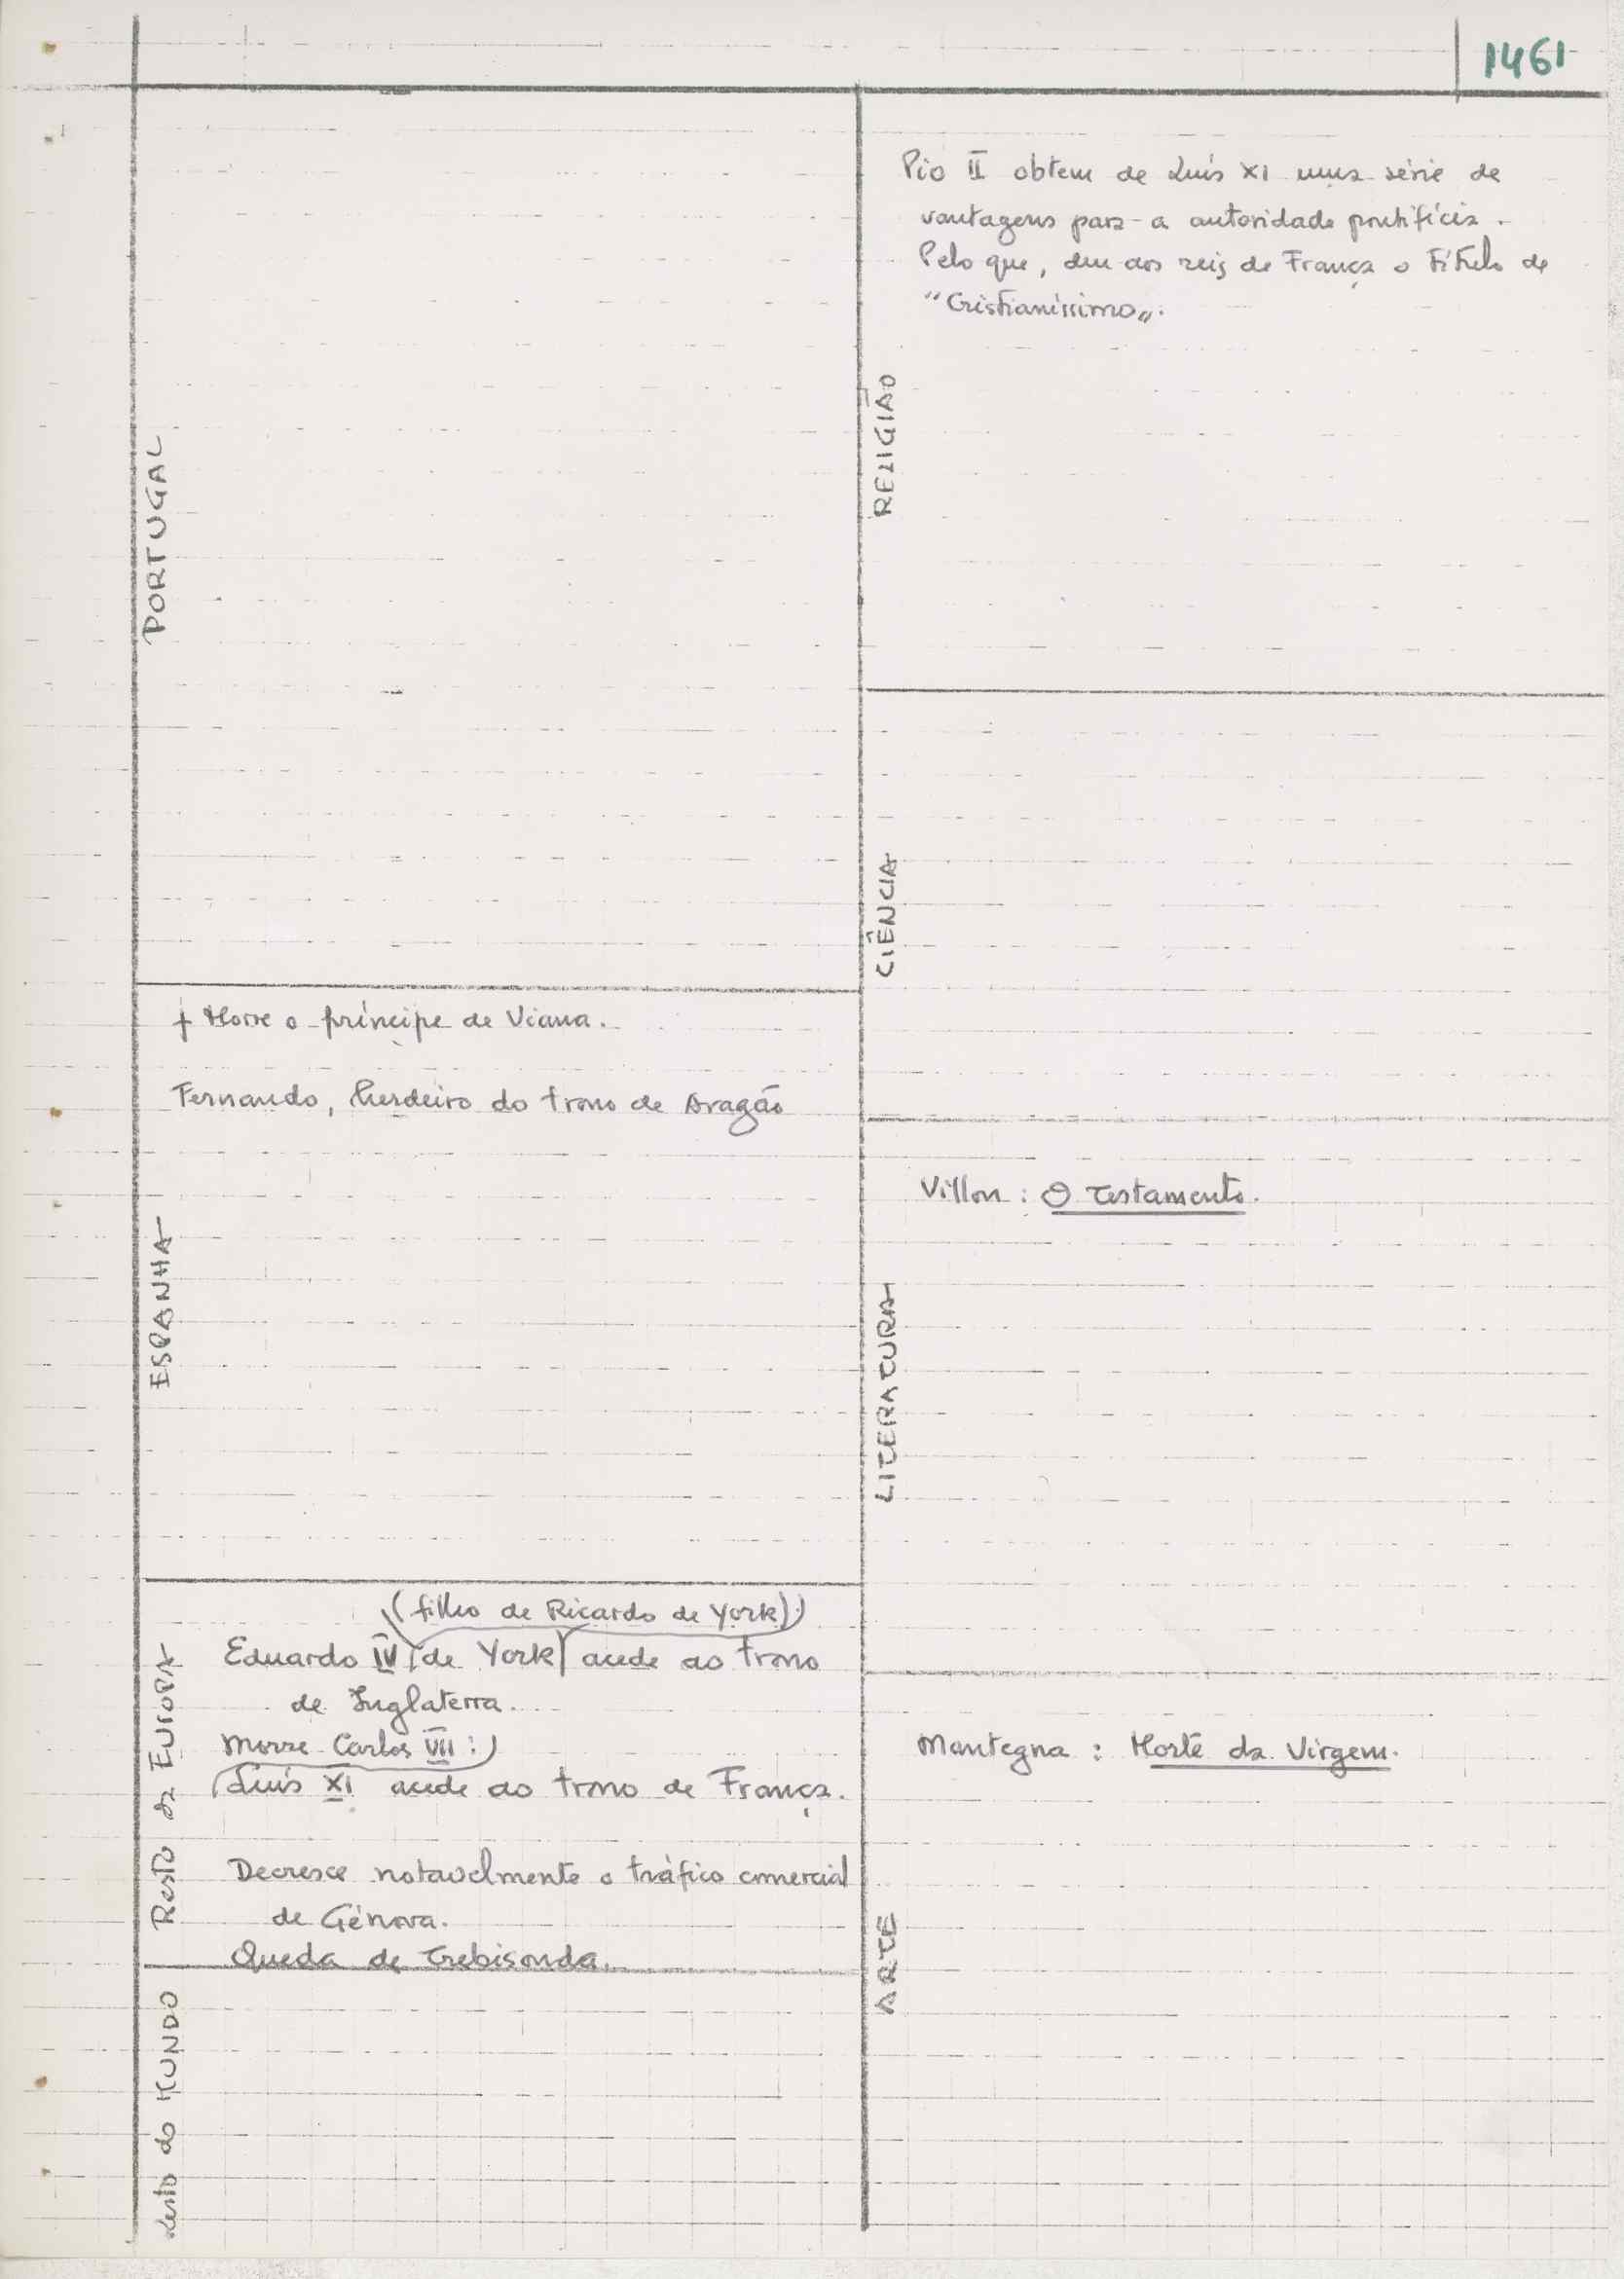 1461
PORTUGAL
ESPANHA
† Morre o príncipe de Viana.
Fernando, herdeiro do trono de Aragão
Resto da EUROPA
(filho de Ricardo de York)
Eduardo IV (de York) acede ao trono
de Inglaterra.
Morre Carlos VII:
Luís XI acede ao trono de França.
Decresce notavelmente o tráfico comercial
de Génova.
Queda de Trebisonda.
Resto do MUNDO
RELIGIÃO
Pio II obtem de Luís XI uma série de
vantagens para a autoridade pontifícia.
Pelo que, deu aos reis de França o título de
"Cristianíssimo".
CIÊNCIA
LITERATURA
Villon: O Testamento.
ARTE
Mantegna: Morte da Virgem.